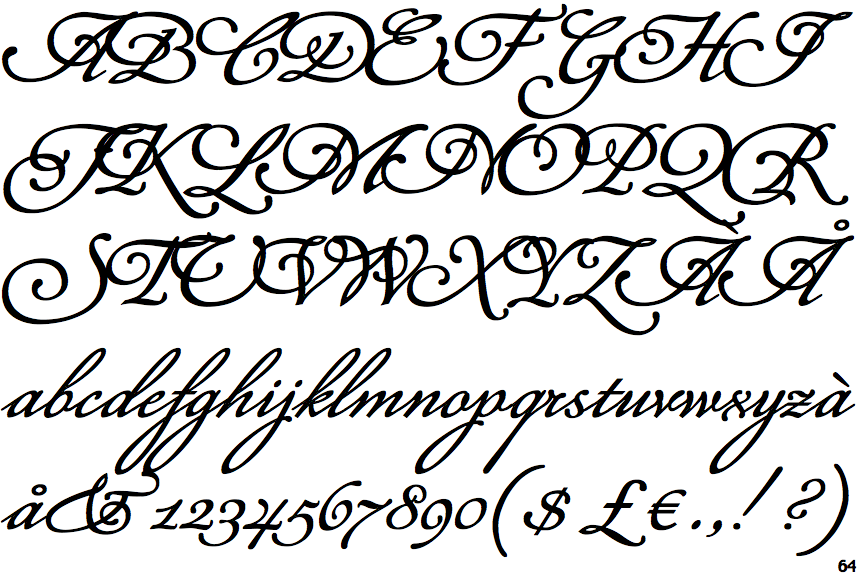 ABCDEFGHI
JKLMNOPQR
STUVWXYZÀÅ
abcdefghijklmnopqrstuvwxyzà
å&1234567890($£€.,!?)
64